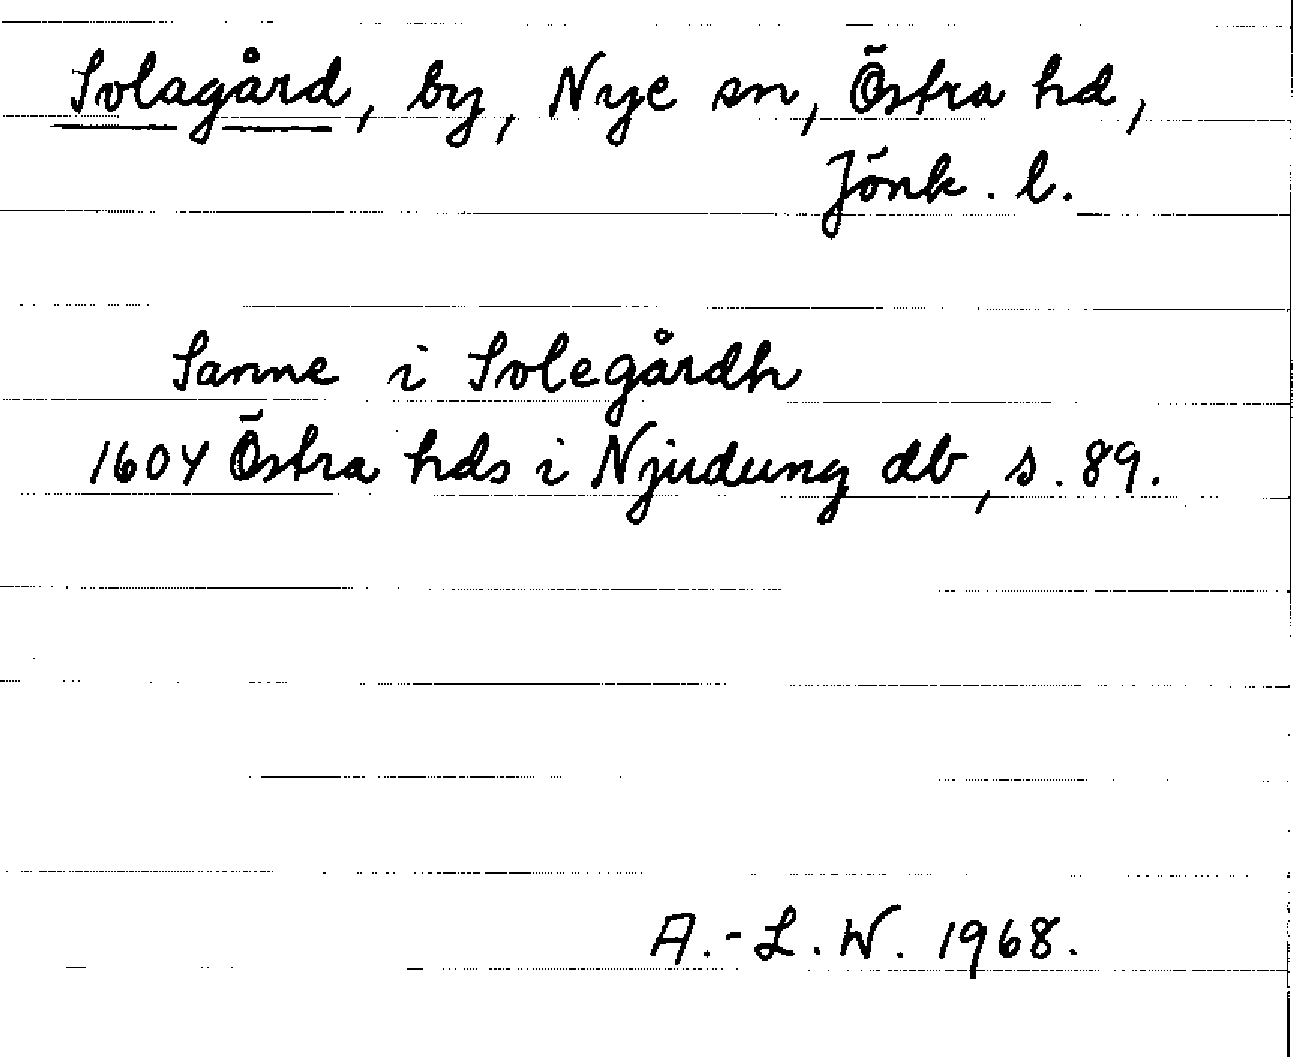 Solagård, by, Nye sn, Östra hd,
Jönk. l.
Sanne i Solegårdh
1604 Östra hds i Njudung db, s. 89.
A.-L. W. 1968.